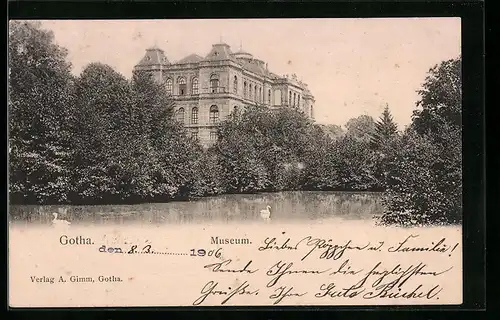 Gotha. Museum. Lieber Röppchen u. Familie!
den 8.3. 1906 Sende Ihnen die herzlichsten
Verlag A. Gimm, Gotha. Grüße. Ihr